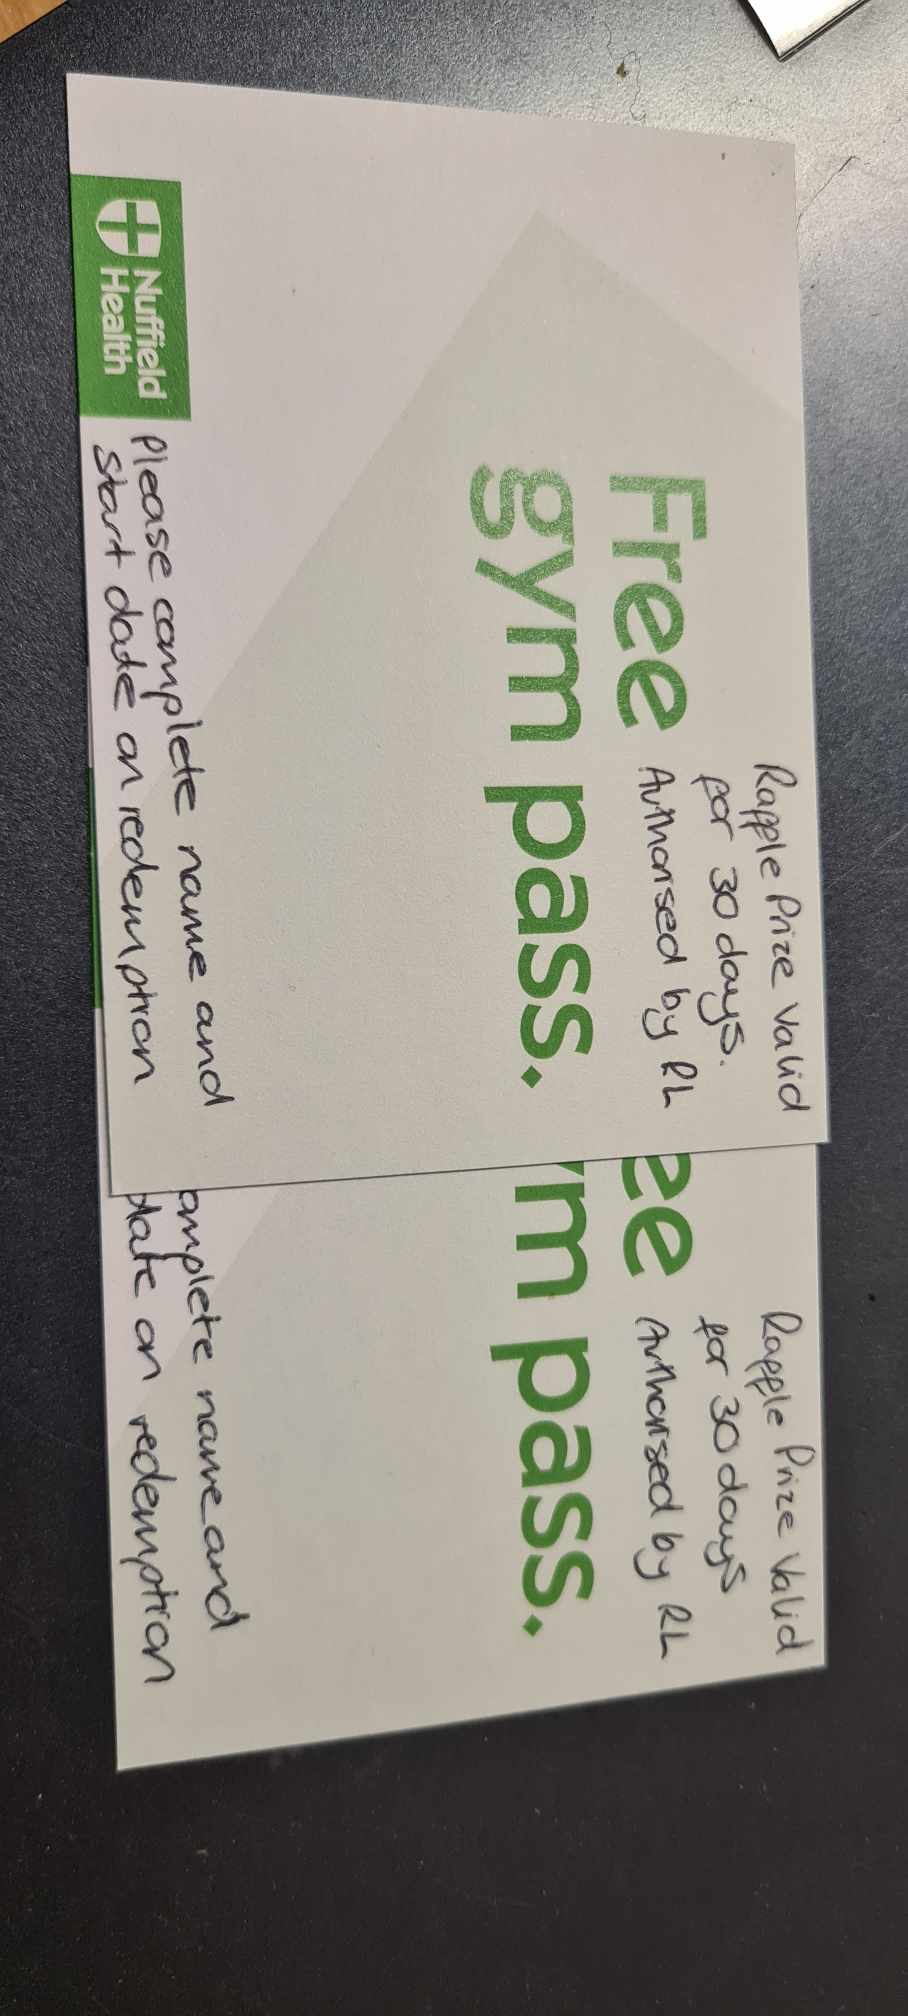 Raffle Prize Valid
for 30 days.
Free
Authorised by RL
gym pass.
Nuffield
Health
Please complete name and
start date on redemption
Raffle Prize Valid
for 30 days
ee
Authorised by RL
ym pass.
omplete name and
date on redemption